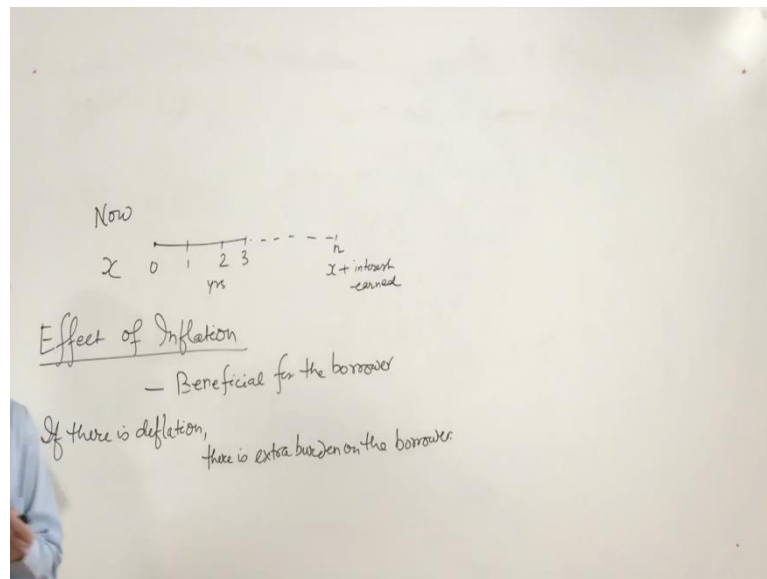 Now
x 0 1 2 3 n
yrs
x + interest
earned
Effect of Inflation
— Beneficial for the borrower
If there is deflation,
there is extra burden on the borrower.